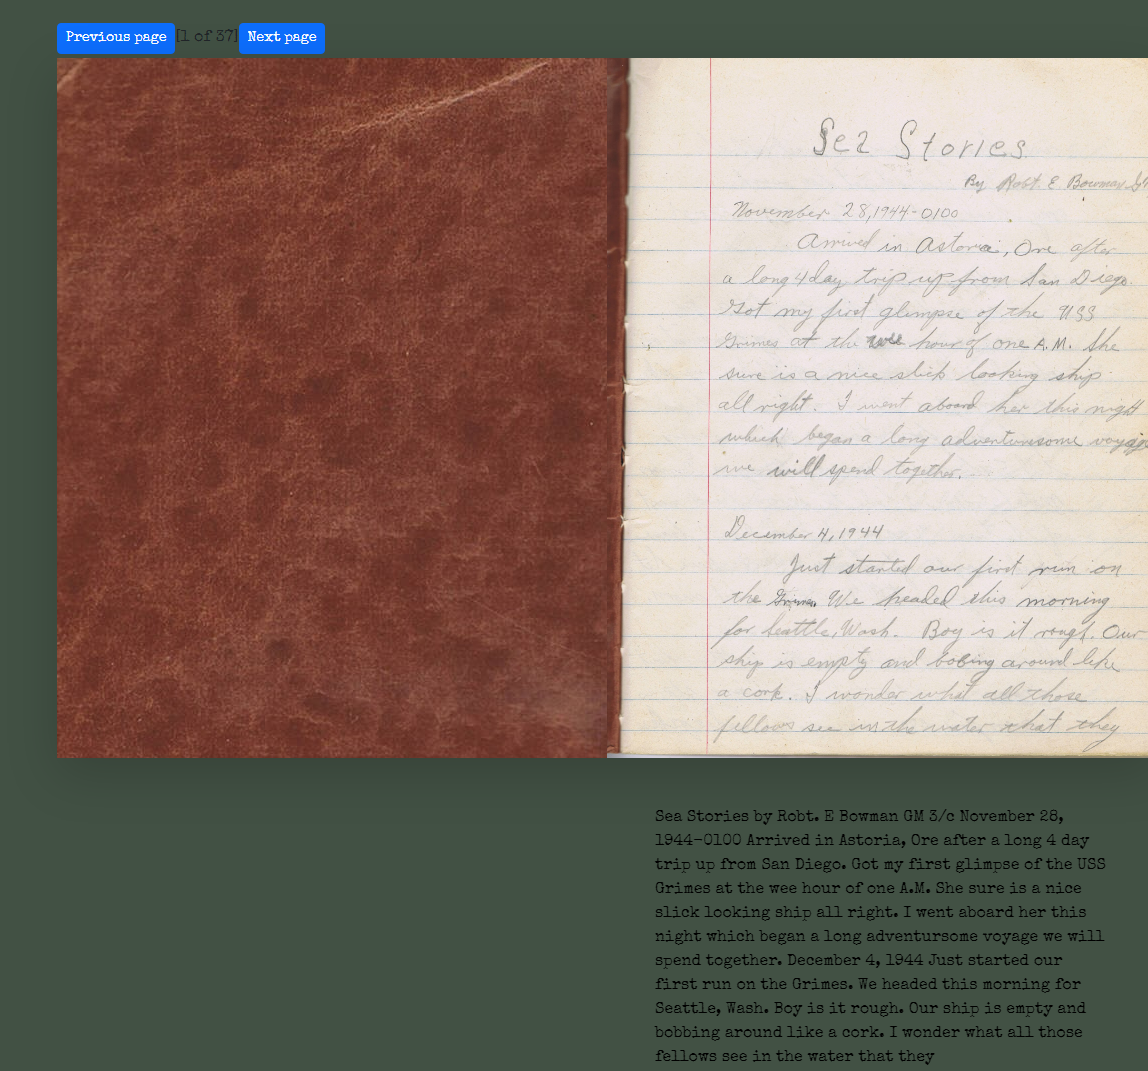 Previous page [1 of 37] Next page
Sea Stories
By Robt. E Bowman
November 28, 1944-0100
Arrived in Astoria, Ore after
a long 4 day trip up from San Diego.
Got my first glimpse of the USS
Grimes at the wee hour of one A.M. She
sure is a nice slick looking ship
all right. I went aboard her this night
which began a long adventursome voyage
we will spend together.
December 4, 1944
Just started our first run on
the Grimes. We headed this morning
for Seattle, Wash. Boy is it rough. Our
ship is empty and bobing around like
a cork. I wonder what all those
fellows see in the water that they
Sea Stories by Robt. E Bowman GM 3/c November 28,
1944-0100 Arrived in Astoria, Ore after a long 4 day
trip up from San Diego. Got my first glimpse of the USS
Grimes at the wee hour of one A.M. She sure is a nice
slick looking ship all right. I went aboard her this
night which began a long adventursome voyage we will
spend together. December 4, 1944 Just started our
first run on the Grimes. We headed this morning for
Seattle, Wash. Boy is it rough. Our ship is empty and
bobbing around like a cork. I wonder what all those
fellows see in the water that they